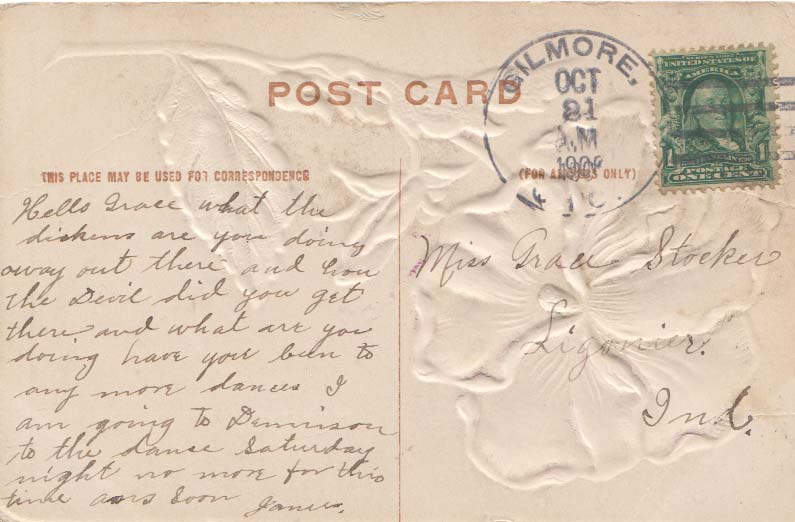 POST CARD
THIS PLACE MAY BE USED FOR CORRESPONDENCE
Hello Grace what the
dickens are you doing
away out there and how
the Devil did you get
there and what are you
doing have you been to
any more dances I
am going to Dennison
to the danse Saturday
night no more for this
time ans soon
(FOR ADDRESS ONLY)
GILMORE,
OCT
21
A.M
UNITED STATES OF
AMERICA
1 1
POSTAGE
ONE CENT
Miss Grace Stocker
Ligonier.
Ind.